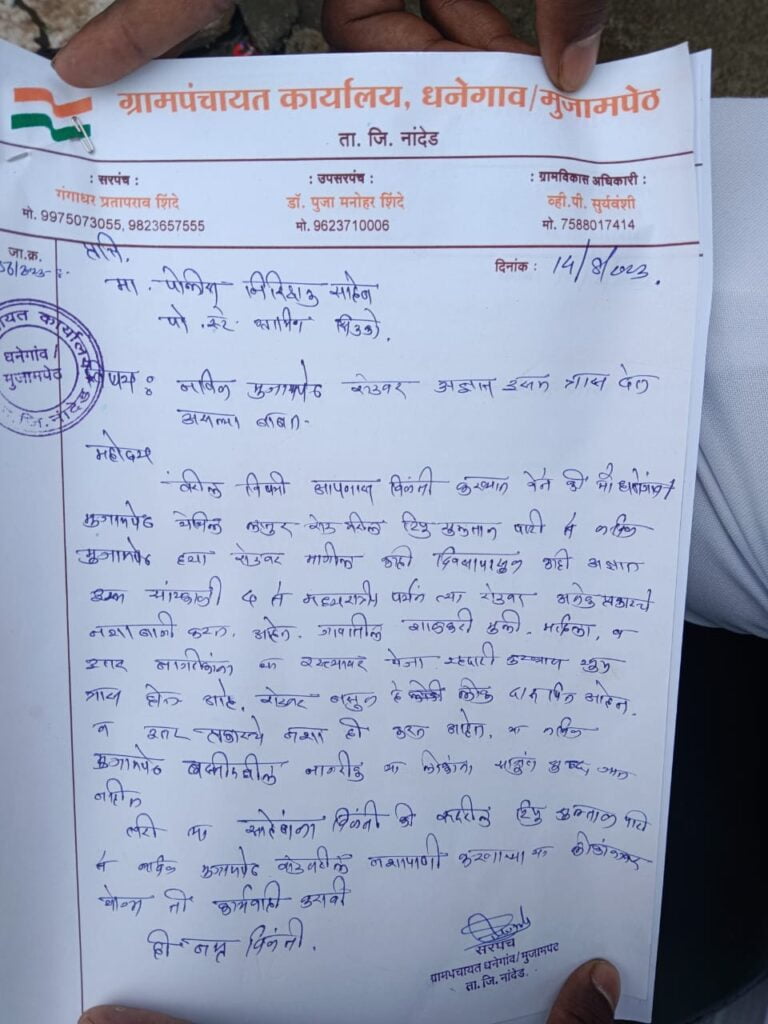 ग्रामपंचायत कार्यालय, धनेगाव/मुजामपेठ
ता. जि. नांदेड
: सरपंच :
गंगाधर प्रतापराव शिंदे
मो. 9975073055, 9823657555
: उपसरपंच :
डॉ. पुजा मनोहर शिंदे
मो. 9623710006
: ग्रामविकास अधिकारी :
व्ही.पी. सुर्यवंशी
मो. 7588017414
जा.क्र.
दिनांक : 14/8/2023.
प्रति,
मा. पोलीस निरिक्षक साहेब
पो. स्टे. ग्रामिण सिडको.
धनेगांव/
मुजामपेठ
विषय : नविन मुजामपेठ रोडवर अज्ञात इसम त्रास देत
असल्या बाबत.
महोदय
वरील विषयी आपणास विनंती करण्यात येते की मी
मुजामपेठ येथिल लातुर रोड वरील टिपु सुलतान पाटी ते नविन
मुजामपेठ ह्या रोडवर मागील काही दिवसापासुन काही अज्ञात
इसम सांयकाळी ६ ते मध्यरात्री पर्यंत त्या रोडवर अनेक प्रकारचे
नशा पानी करत आहेत. गावातील शाळकरी मुली, महिला, व
इतर नागरीकांना या रस्त्यावर येजा करण्यास खुप
त्रास होत आहे. रोडवर बसुन हे लोक दारू पित आहेत.
व इतर प्रकारचे नशा ही करत आहेत. या नविन
मुजामपेठ वस्तीतील नागरीक या लोकांना
नाहीत
तरी मा साहेबांना विनंती की वरील टिपु सुलतान पाटी
ते नविन मुजामपेठ रोडवरील नशापाणी करणाऱ्या या लोकांवर
योग्य ती कार्यवाही करावी
ही नम्र विनंती.
सरपंच
ग्रामपंचायत धनेगांव/मुजामपेठ
ता. जि. नांदेड.